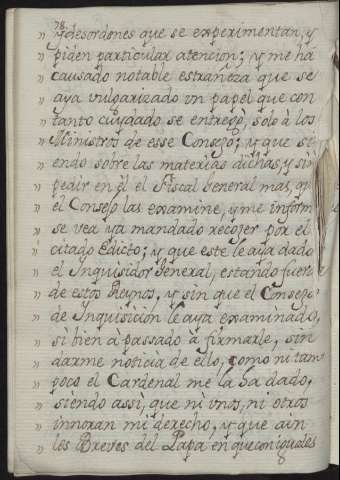 78.
" y desordenes que se experimentan, y
" piden particular atencion; y me ha
" causado notable estrañeza que se
" aya vulgarizado vn papel que con
" tanto cuydado se entregò, solo à los
" Ministros de esse Consejo; y que si-
" endo sobre las materias dichas, y sin
" pedir en èl el Fiscal General mas, q̃
" el Consejo las examine, y me inform
" se vea ya mandado recojer por el
" citado Edicto; y que este le aya dado
" el Inquisidor General, estando fuera
" de estos Reynos, y sin que el Consejo
" de Inquisición le aya examinado,
" si bien à passado à firmarle, sin
" darme noticia de ello, como ni tam-
" poco el Cardenal me la ha dado,
" siendo assi, que ni vnos, ni otros
" innoran mi derecho, y que aùn
" los Breves del Papa en que con iguales